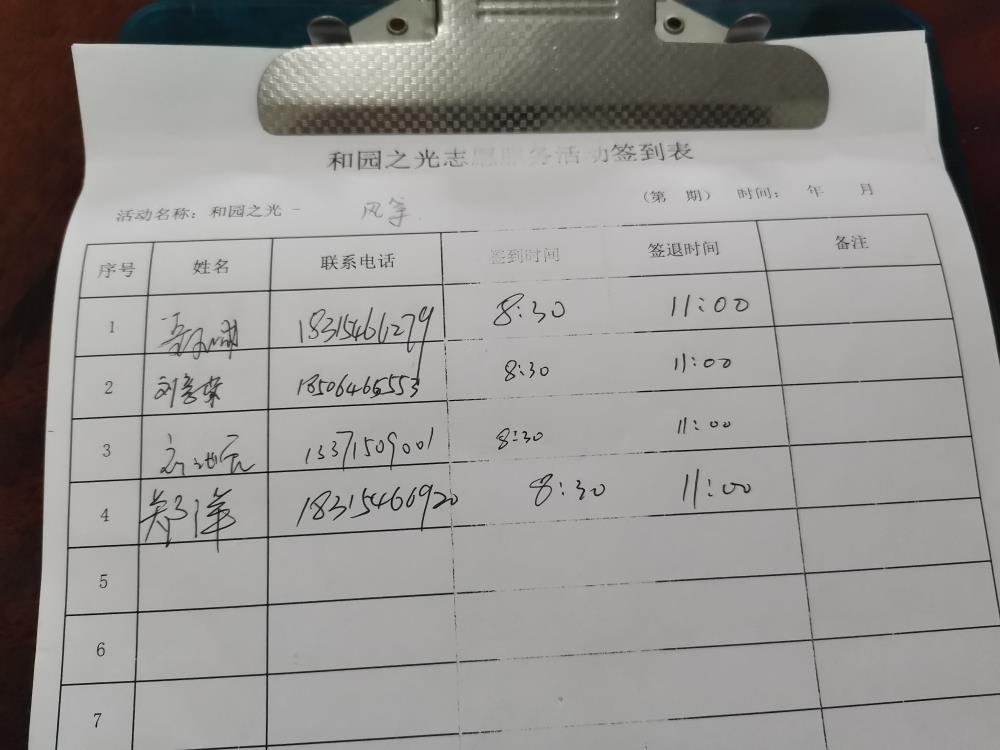 和园之光志愿服务活动签到表
活动名称：和园之光- 风筝 （第 期） 时间： 年 月
序号 姓名 联系电话 签到时间 签退时间 备注
1 18315461279 8:30 11:00
2 刘 荣 18506465553 8:30 11:00
3 13371509001 8:30 11:00
4 郑洋 18315466920 8:30 11:00
5
6
7